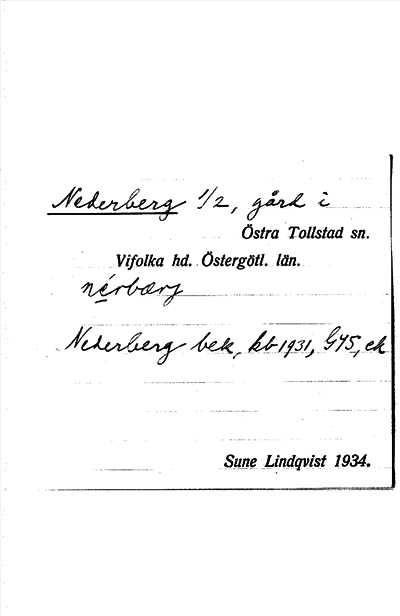 Nederberg 1/2, gård i
Östra Tollstad sn.
Vifolka hd. Östergötl. län.
nérbærj
Nederberg bek, kb 1931, G45, ek
Sune Lindqvist 1934.